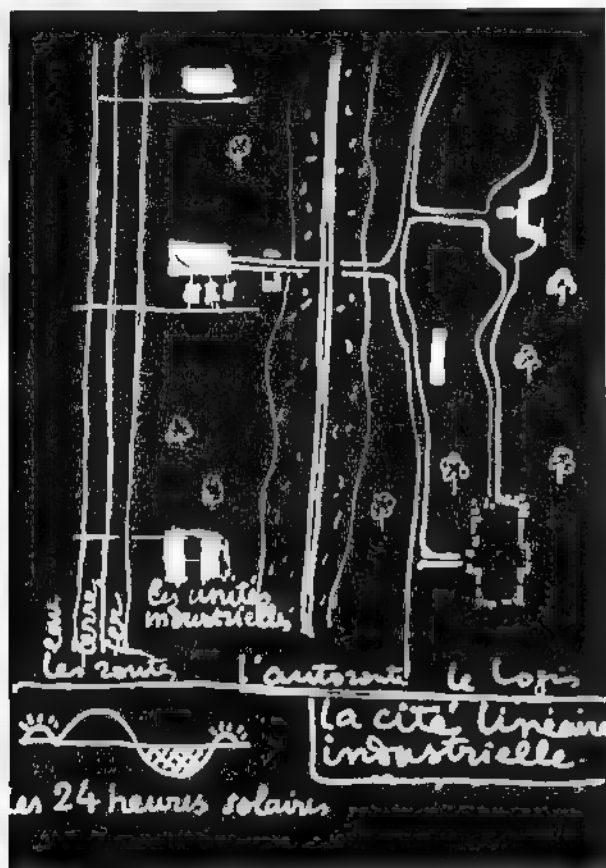 eau
terre
fer
les unités
industrielles
les routes
l'autoroute
le logis
la cité linéaire
industrielle
les 24 heures solaires